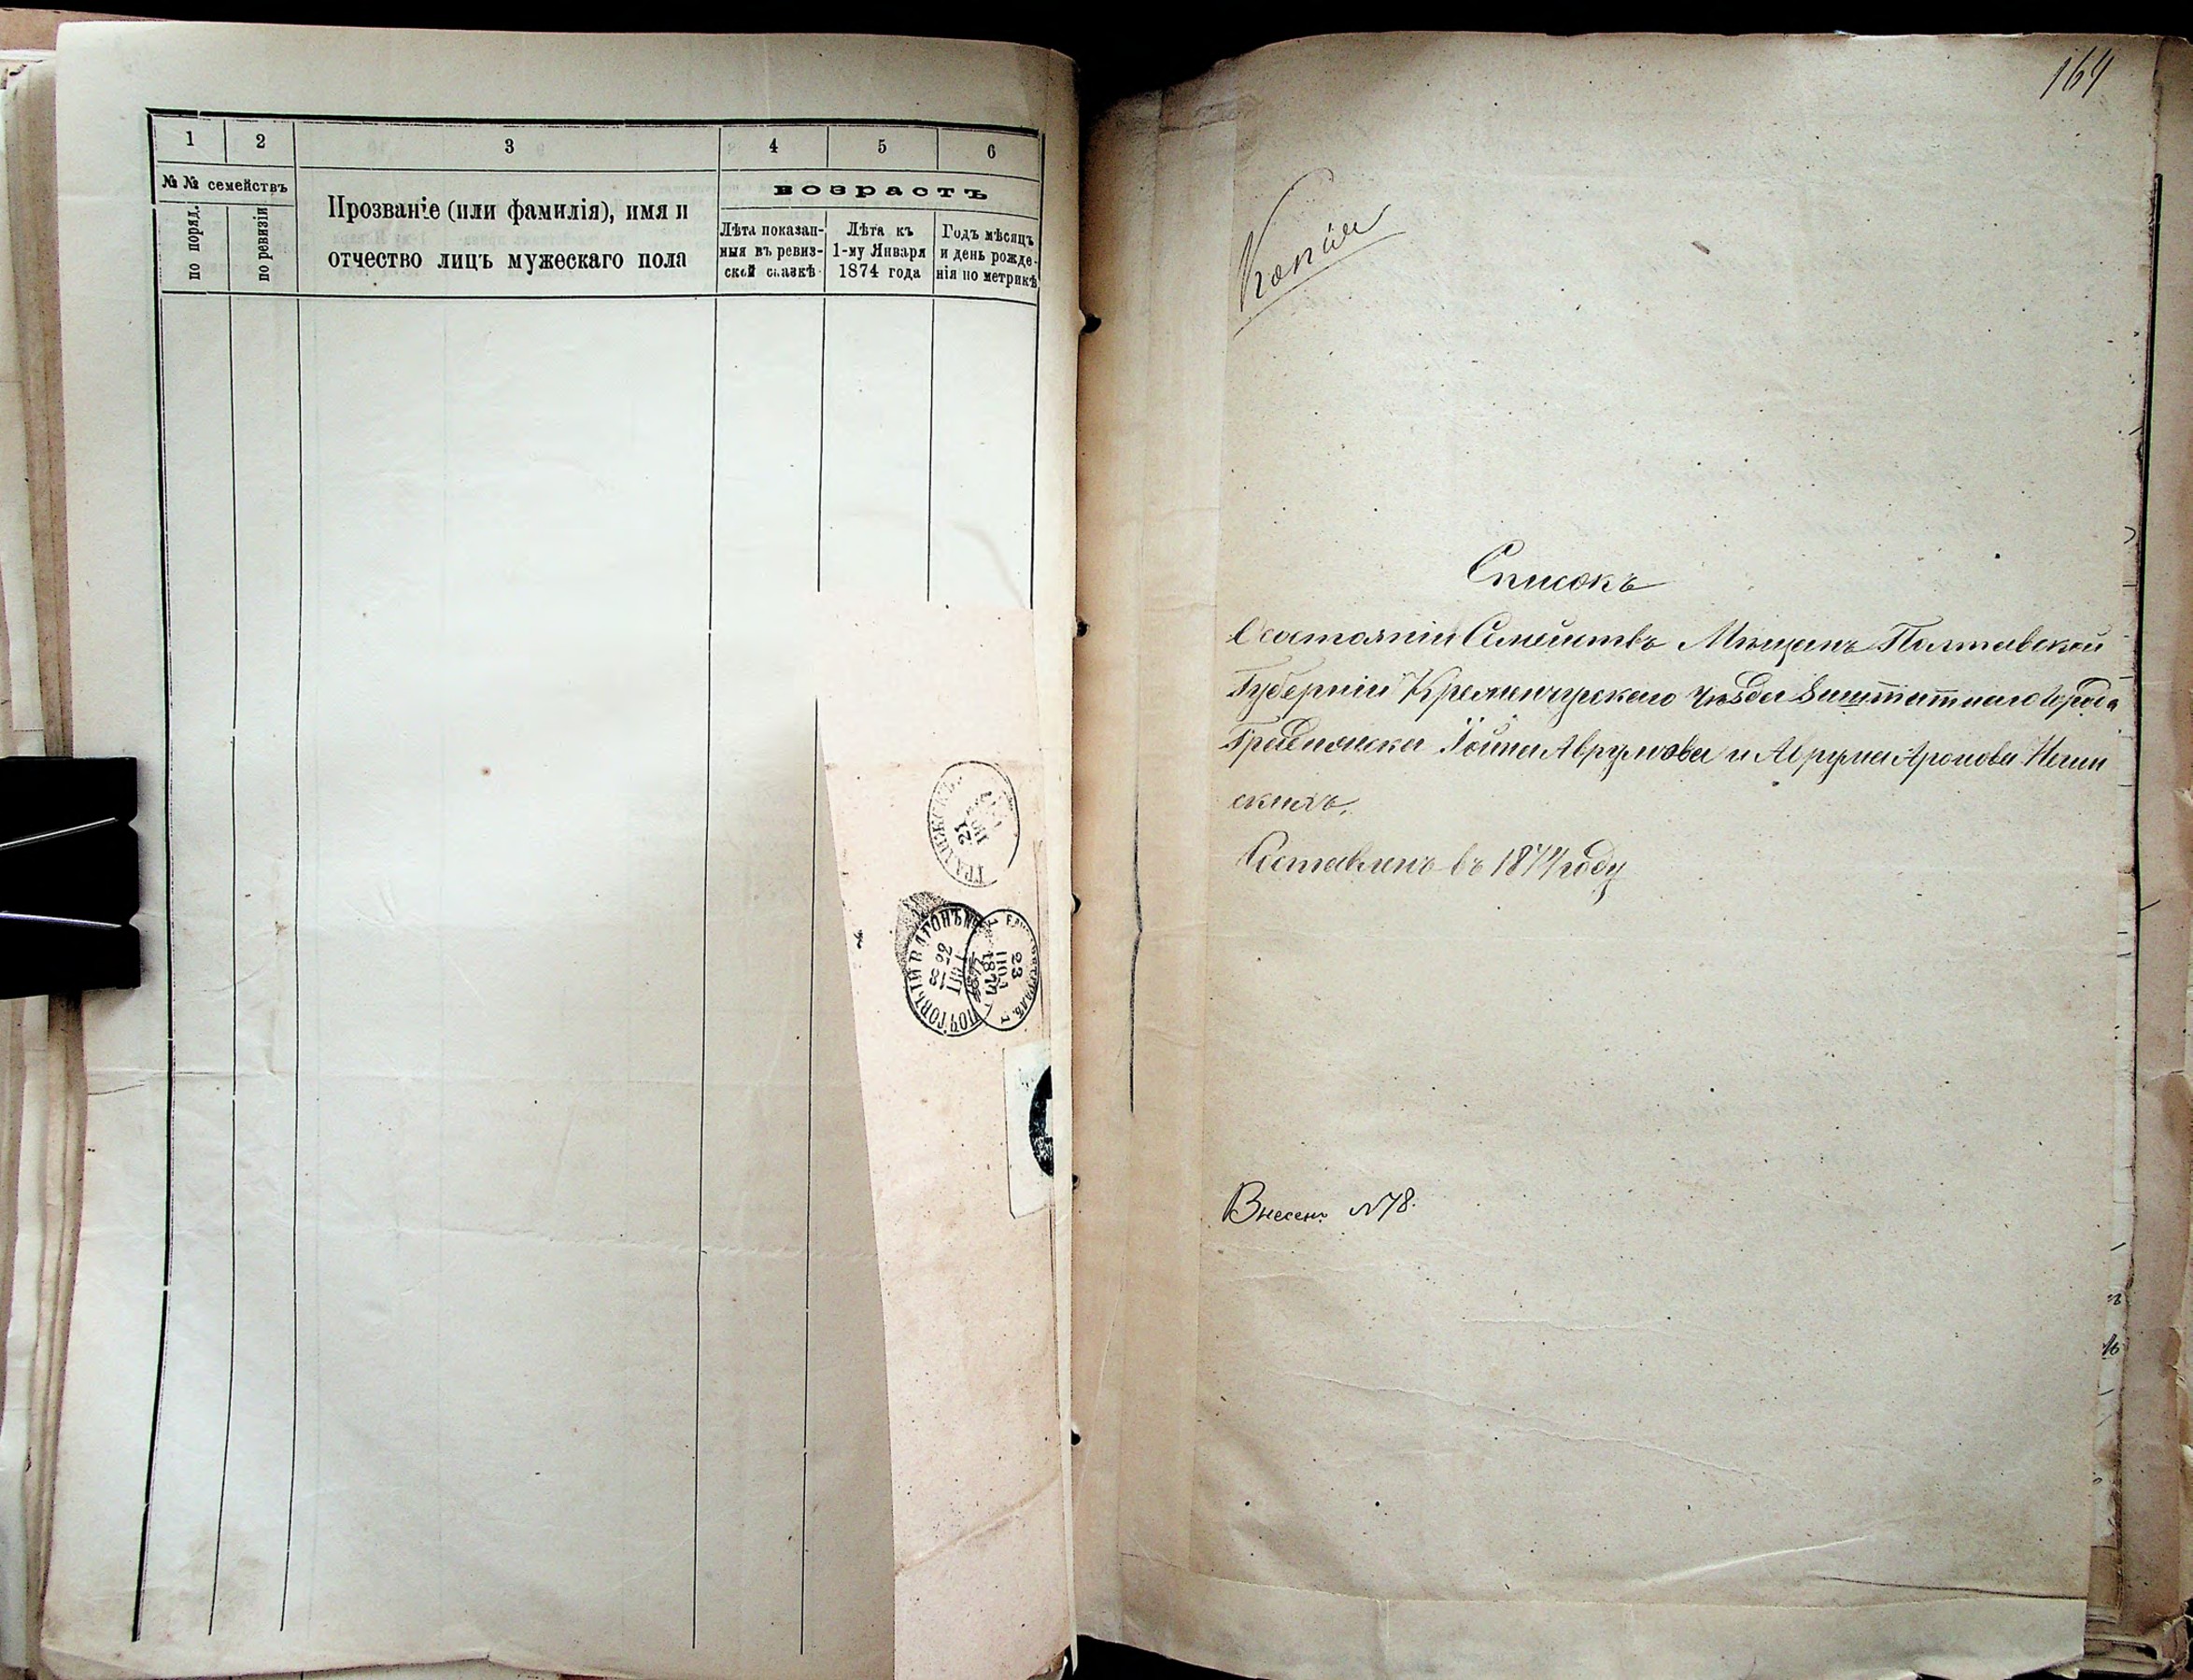 1 2 3 4 5 6
№№ семействъ
по поряд.
по ревизіи
Прозваніе (или фамилія), имя и
отчество лицъ мужескаго пола
возрастъ
Лѣта показан-
ныя въ ревиз-
ской сказкѣ
Лѣта къ
1-му Января
1874 года
Годъ мѣсяцъ
и день рожде-
нія по метрикѣ
21
ПОЧТОВЫЙ ВАГОНЪ
22
23
ІЮЛ
1877
164
Копія
Списокъ
О состояніи Семействъ Мѣщанъ Полтавской
Губерніи Кременчугскаго Уѣзда Заштатнаго Города
Градижска Іойны Аврумова и Аврума Аронова
скихъ.
Составленъ въ 1874 году
Внесен. №78.